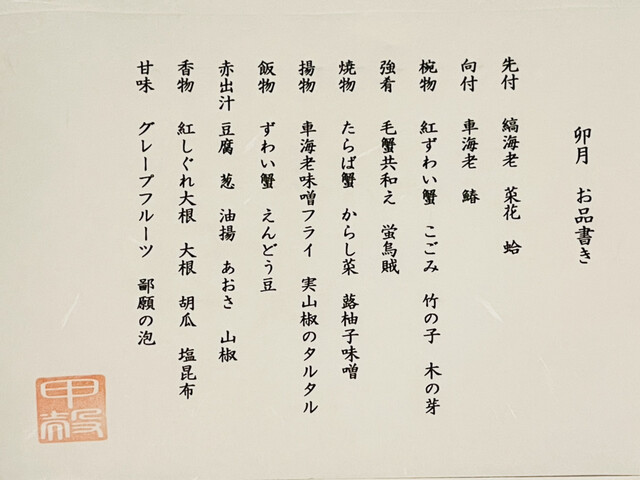 卯月 お品書き
先付 縞海老 菜花 蛤
向付 車海老 鰆
椀物 紅ずわい蟹 こごみ 竹の子 木の芽
強肴 毛蟹共和え 蛍烏賊
焼物 たらば蟹 からし菜 蕗柚子味噌
揚物 車海老味噌フライ 実山椒のタルタル
飯物 ずわい蟹 えんどう豆
赤出汁 豆腐 葱 油揚 あおさ 山椒
香物 紅しぐれ大根 大根 胡瓜 塩昆布
甘味 グレープフルーツ 鄙願の泡
甲殻